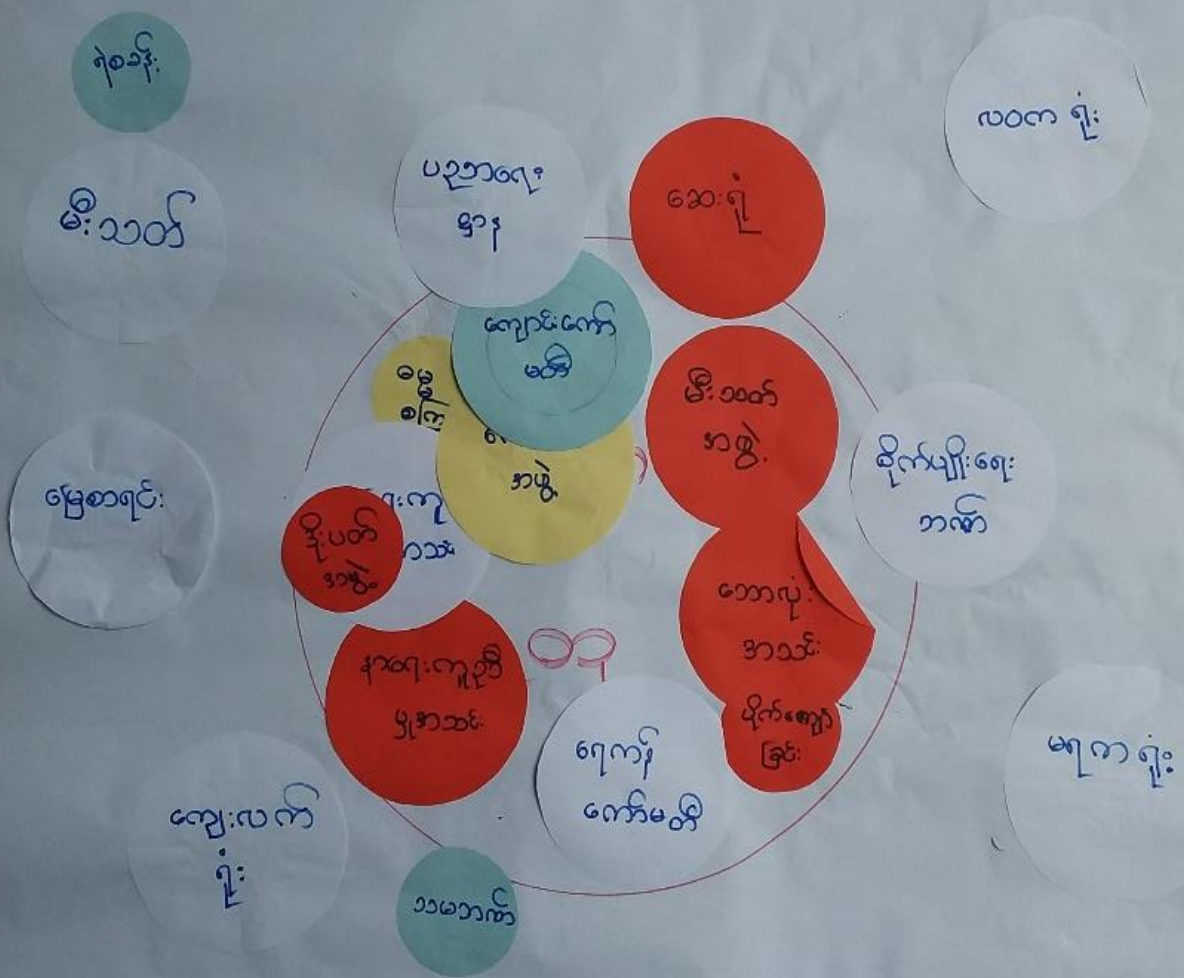 ရဲစခန်း
မီးသတ်
ပညာရေး
ဌာန
ဆေးရုံ
လဝက ရုံး
ကျောင်းကော်
မတီ
ဓမ္မ
စကြာ
အဖွဲ့
မီးသတ်
အဖွဲ့
စိုက်ပျိုးရေး
ဘဏ်
မြေစာရင်း
ဒိုးပတ်
အဖွဲ့
ဘောလုံး
အသင်း
နာရေးကူညီ
မှုအသင်း
ရေကန်
ကော်မတီ
ပိုက်ကျော်
ခြင်း
မရက ရုံး
ကျေးလက်
ရုံး
သမဘဏ်